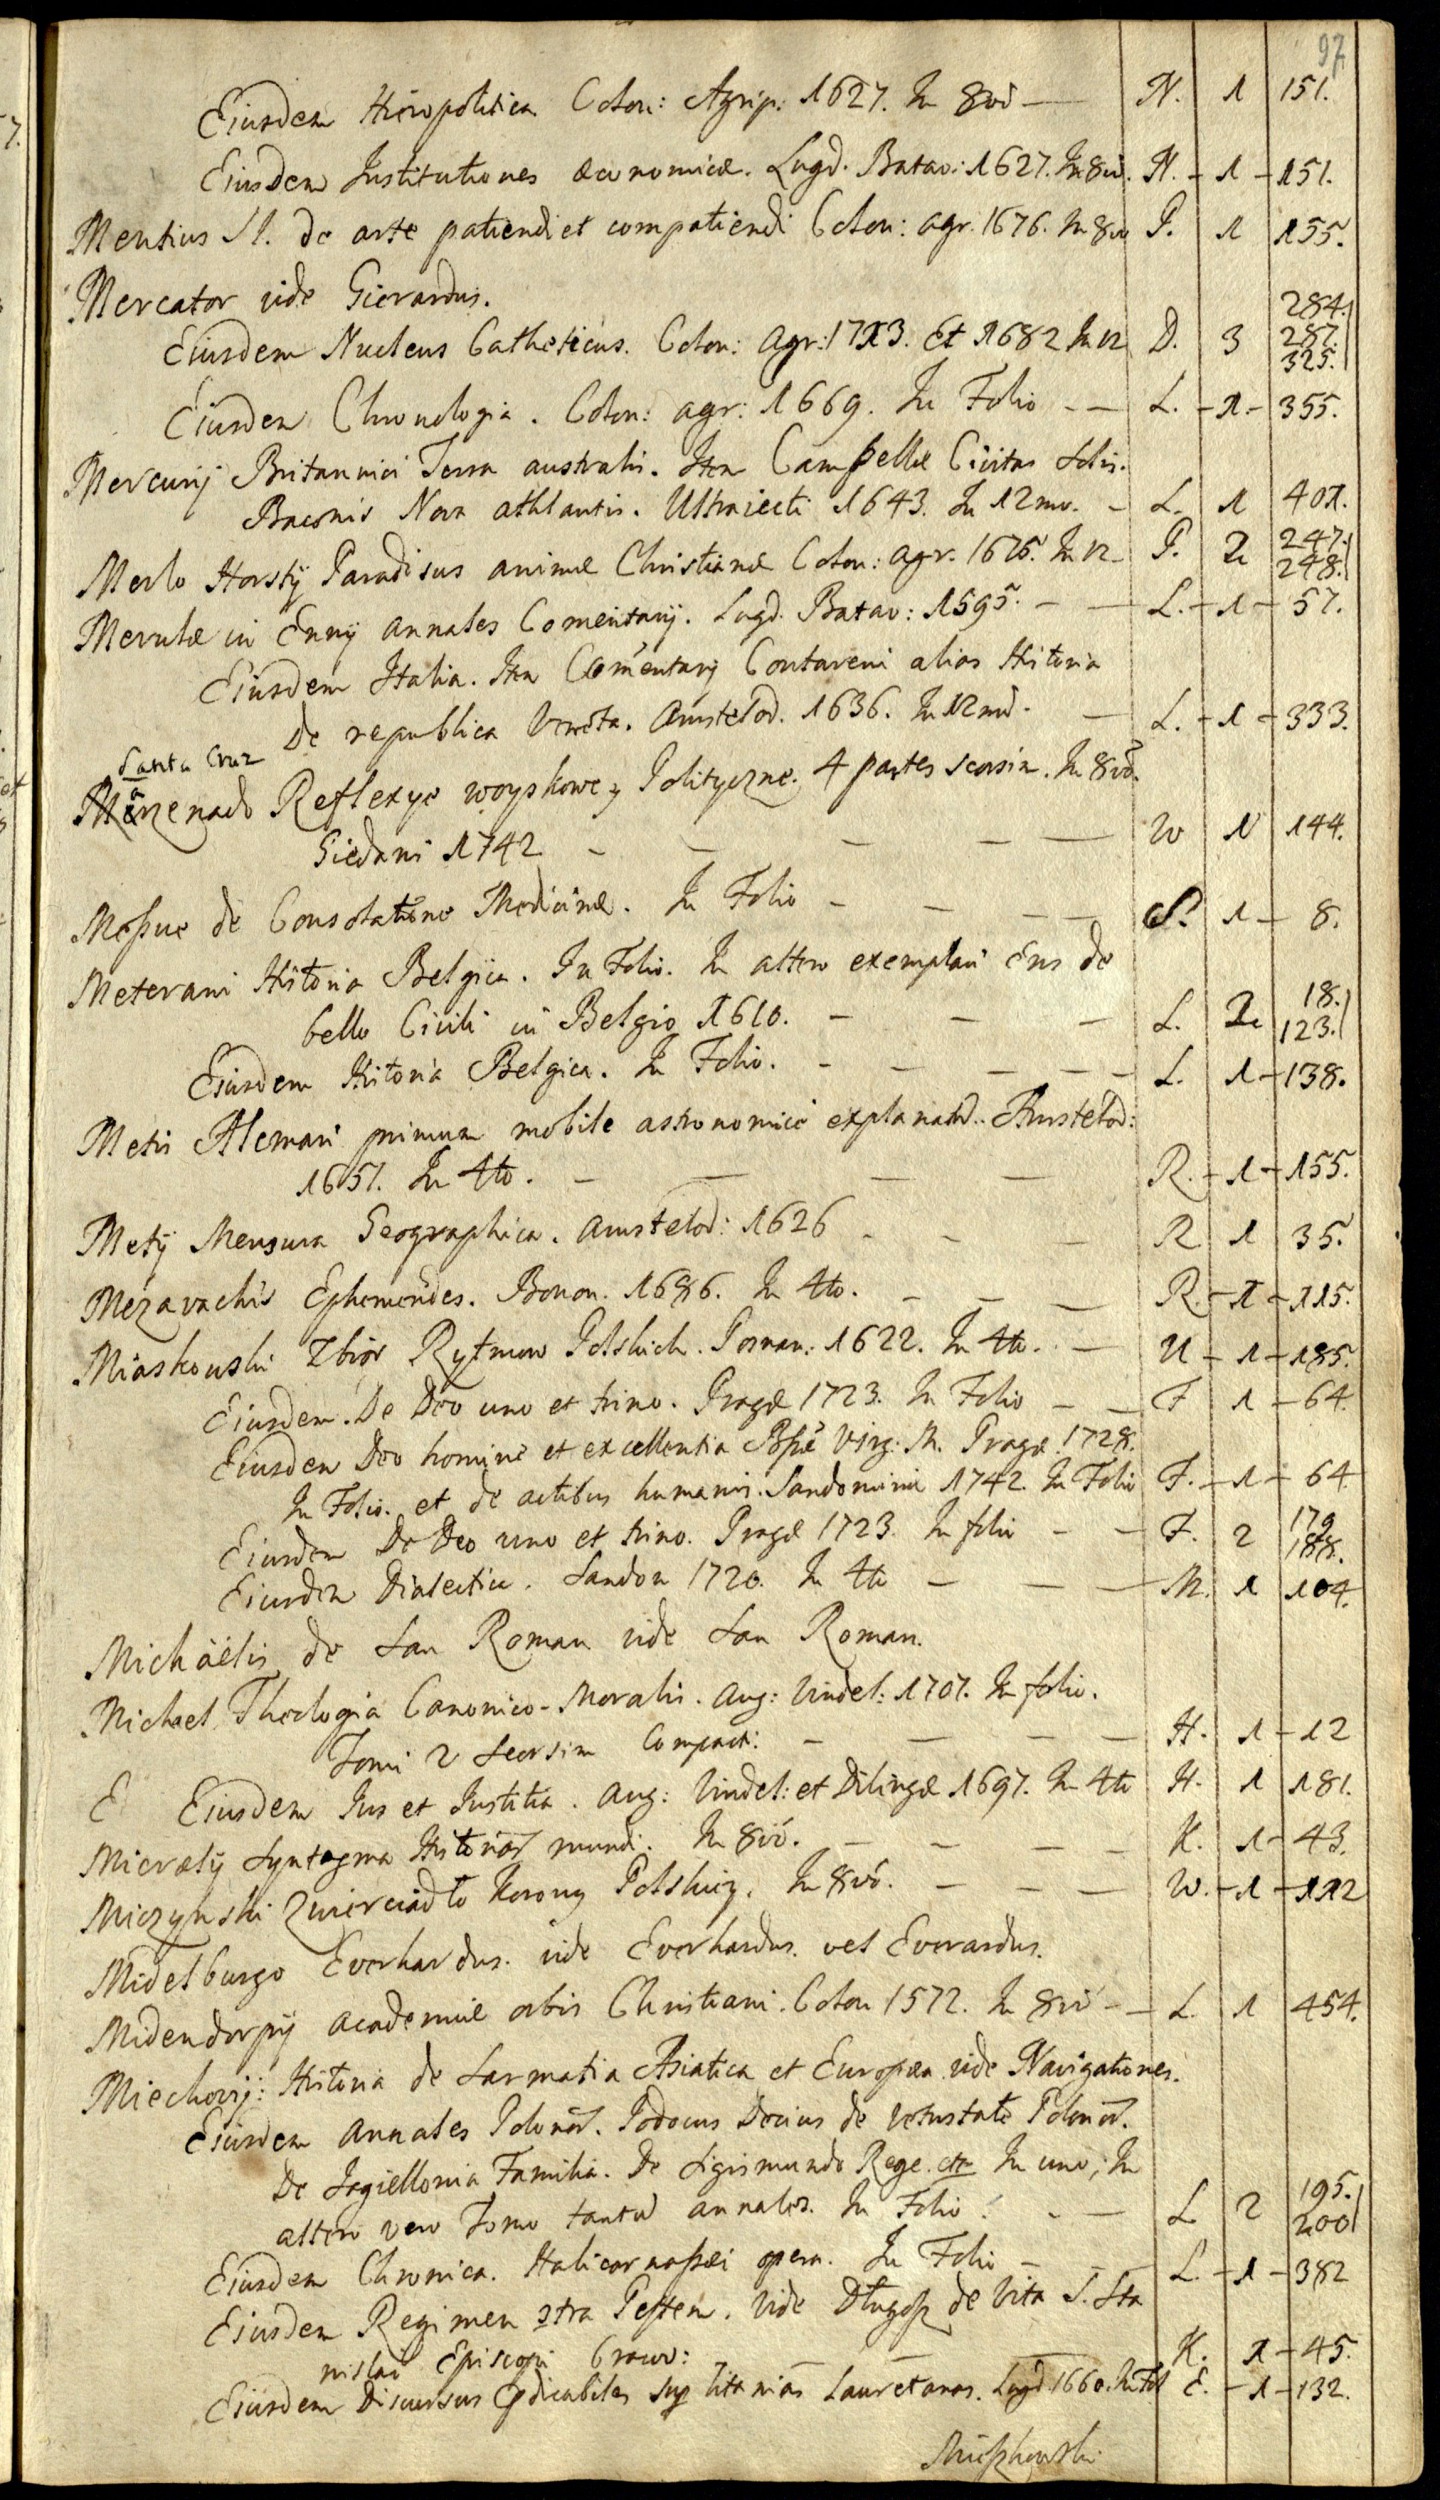 97
Eiusdem Hieropolitica Colon: Agrip: 1627. In 8vo — N. 1 151.
Eiusdem Institutiones æconomicæ. Lugd. Batav: 1627. In 8vo. N. - 1 - 151.
Mentius de arte patiendi et compatiendi Colon: agr. 1676. In 8vo P. 1 155.
Mercator vide Gierardus.
Eiusdem Nucleus Catheticus. Colon: Agr: 1713. Et 1682 In 12 D. 3 284. 287. 325.
Eiusdem Chronologia. Colon: agr: 1669. In Folio - — L. - 1 - 355.
Mercurij Britannici Terra australis. Item Campellæ Civitas Solis.
Baconis Nova athlantis. Ultraiecti 1643. In 12mo. - L. 1 401.
Merlo Horstij Paradisus animæ Christianæ Colon: agr. 1675. In 12 - P. 2 247. 248.
Merulæ in Ennij annales Comentarij. Lugd. Batav: 1595. - — L. - 1 - 57.
Eiusdem Italia. Item Comentarij Contareni alias Historia
De republica Veneta. Amstelod. 1636. In 12mo. — L. - 1 - 333.
Santa Cruz
Marzenado Reflexye woyskowe y Polityczne. 4 partes seorsim. In 8vo.
Giedani 1742 - — — - — W 1 144.
Mesſue de Consolatione Medicinæ. In Folio - — - — S. 1 - 8.
Meterani Historia Belgica. In Folio. In altero exemplari Ens de
bello Civili in Belgio 1610. - — — L. 2 18. 123.
Eiusdem Historia Belgica. In Folio. - — — - - L. 1 - 138.
Metii Alcmari primum mobile astronomicè explanatū. Amstelod:
1657. In 4to. - — — — R. - 1 - 155.
Metij Mensura Geographica. Amstelod: 1626 - - — R 1 35.
Mezavachis Ephemerides. Bonon. 1686. In 4to. - — — R. - 1 - 115.
Miaskowski Zbiór Rytmow Polskich. Posnan: 1622. In 4to. — U - 1 - 185.
Eiusdem. De Deo uno et trino. Pragæ 1723. In Folio - — F 1 - 64.
Eiusdem Deo homine et excellentia Bſſæ Virg: M. Pragæ. 1728.
In Folio. et de actibus humanis. Sandomiriæ 1742. In Folio F. - 1 - 64
Eiusdem De Deo uno et trino. Pragæ 1723. In folio - — F. 2 179 188.
Eiusdem Dialectica. Sandom 1720. In 4to — — — M. 1 104.
Michäelis de San Roman vide San Roman.
Michael Theologia Canonico-Moralis. Aug: Vindel: 1707. In folio.
Tomi 2 seorsim Compact: - — — — H. 1 - 12
E Eiusdem Jus et Justitia. Aug: Vindel: et Dilingæ 1697. In 4to H. 1 181.
Micrælij Syntagma Historiar̄ mundi. In 8vo. — - — - K. 1 - 43.
Miczynski Zwierciadło Korony Polskiey. In 8vo. — — — W. - 1 - 112
Midelburgo Everhardus. vide Everhardus. vel Everardus.
Midendorpij academiæ orbis Christiani. Colon 1572. In 8vo - — L. 1 454.
Miechovij: Historia de Sarmatia Asiatica et Europæa vide Navigationes.
Eiusdem Annales Polonor̄. Jodocus Decius de vetustate Polonor̄.
De Jagiellonia Familia. De Sigismundo Rege. etc In uno; In
altero vero Tomo tantū annales. In Folio. - — L 2 195. 200
Eiusdem Chronica. Halicarnaſſæi opera. In Folio — - — L. - 1 - 382
Eiusdem Regimen 9tra Pestem. Vide Długoſz de Vita S. Sta
nislai Episcopi Cracov: - — — — K. 1 - 45.
Eiusdem Discursus prædicabiles sup litanias Lauretanas. Lugd 1660. In Fol E. - 1 - 132.
Miſzkowski